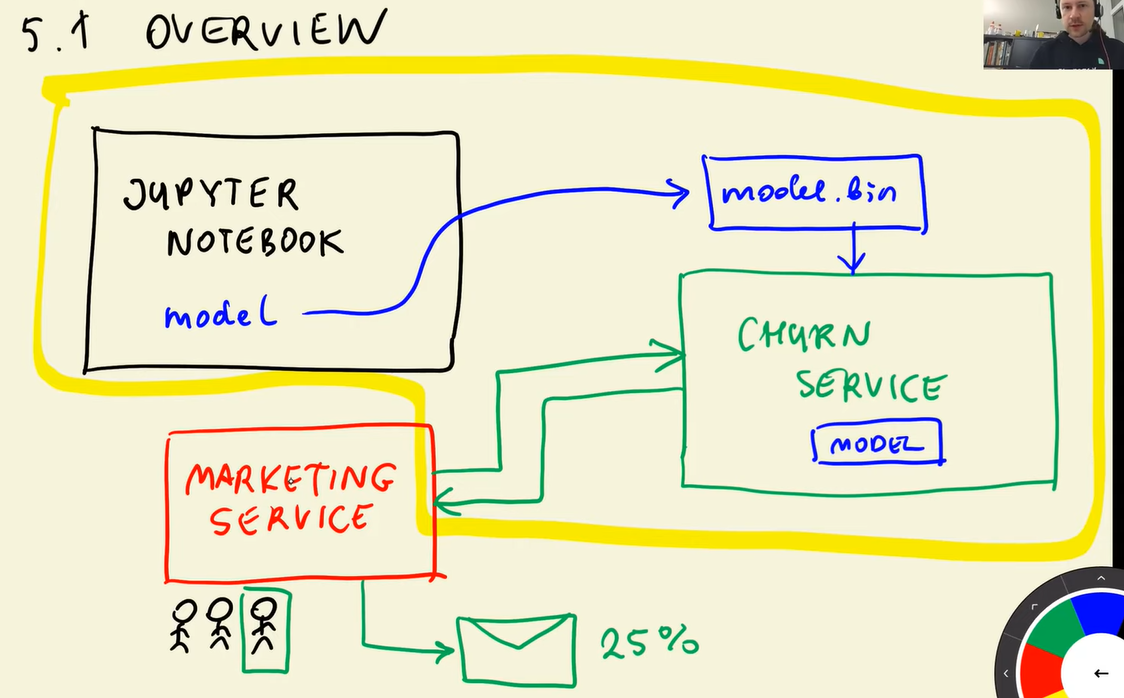 5.1 OVERVIEW
JUPYTER
NOTEBOOK
model
model.bin
CHURN
SERVICE
MODEL
MARKETING
SERVICE
25%